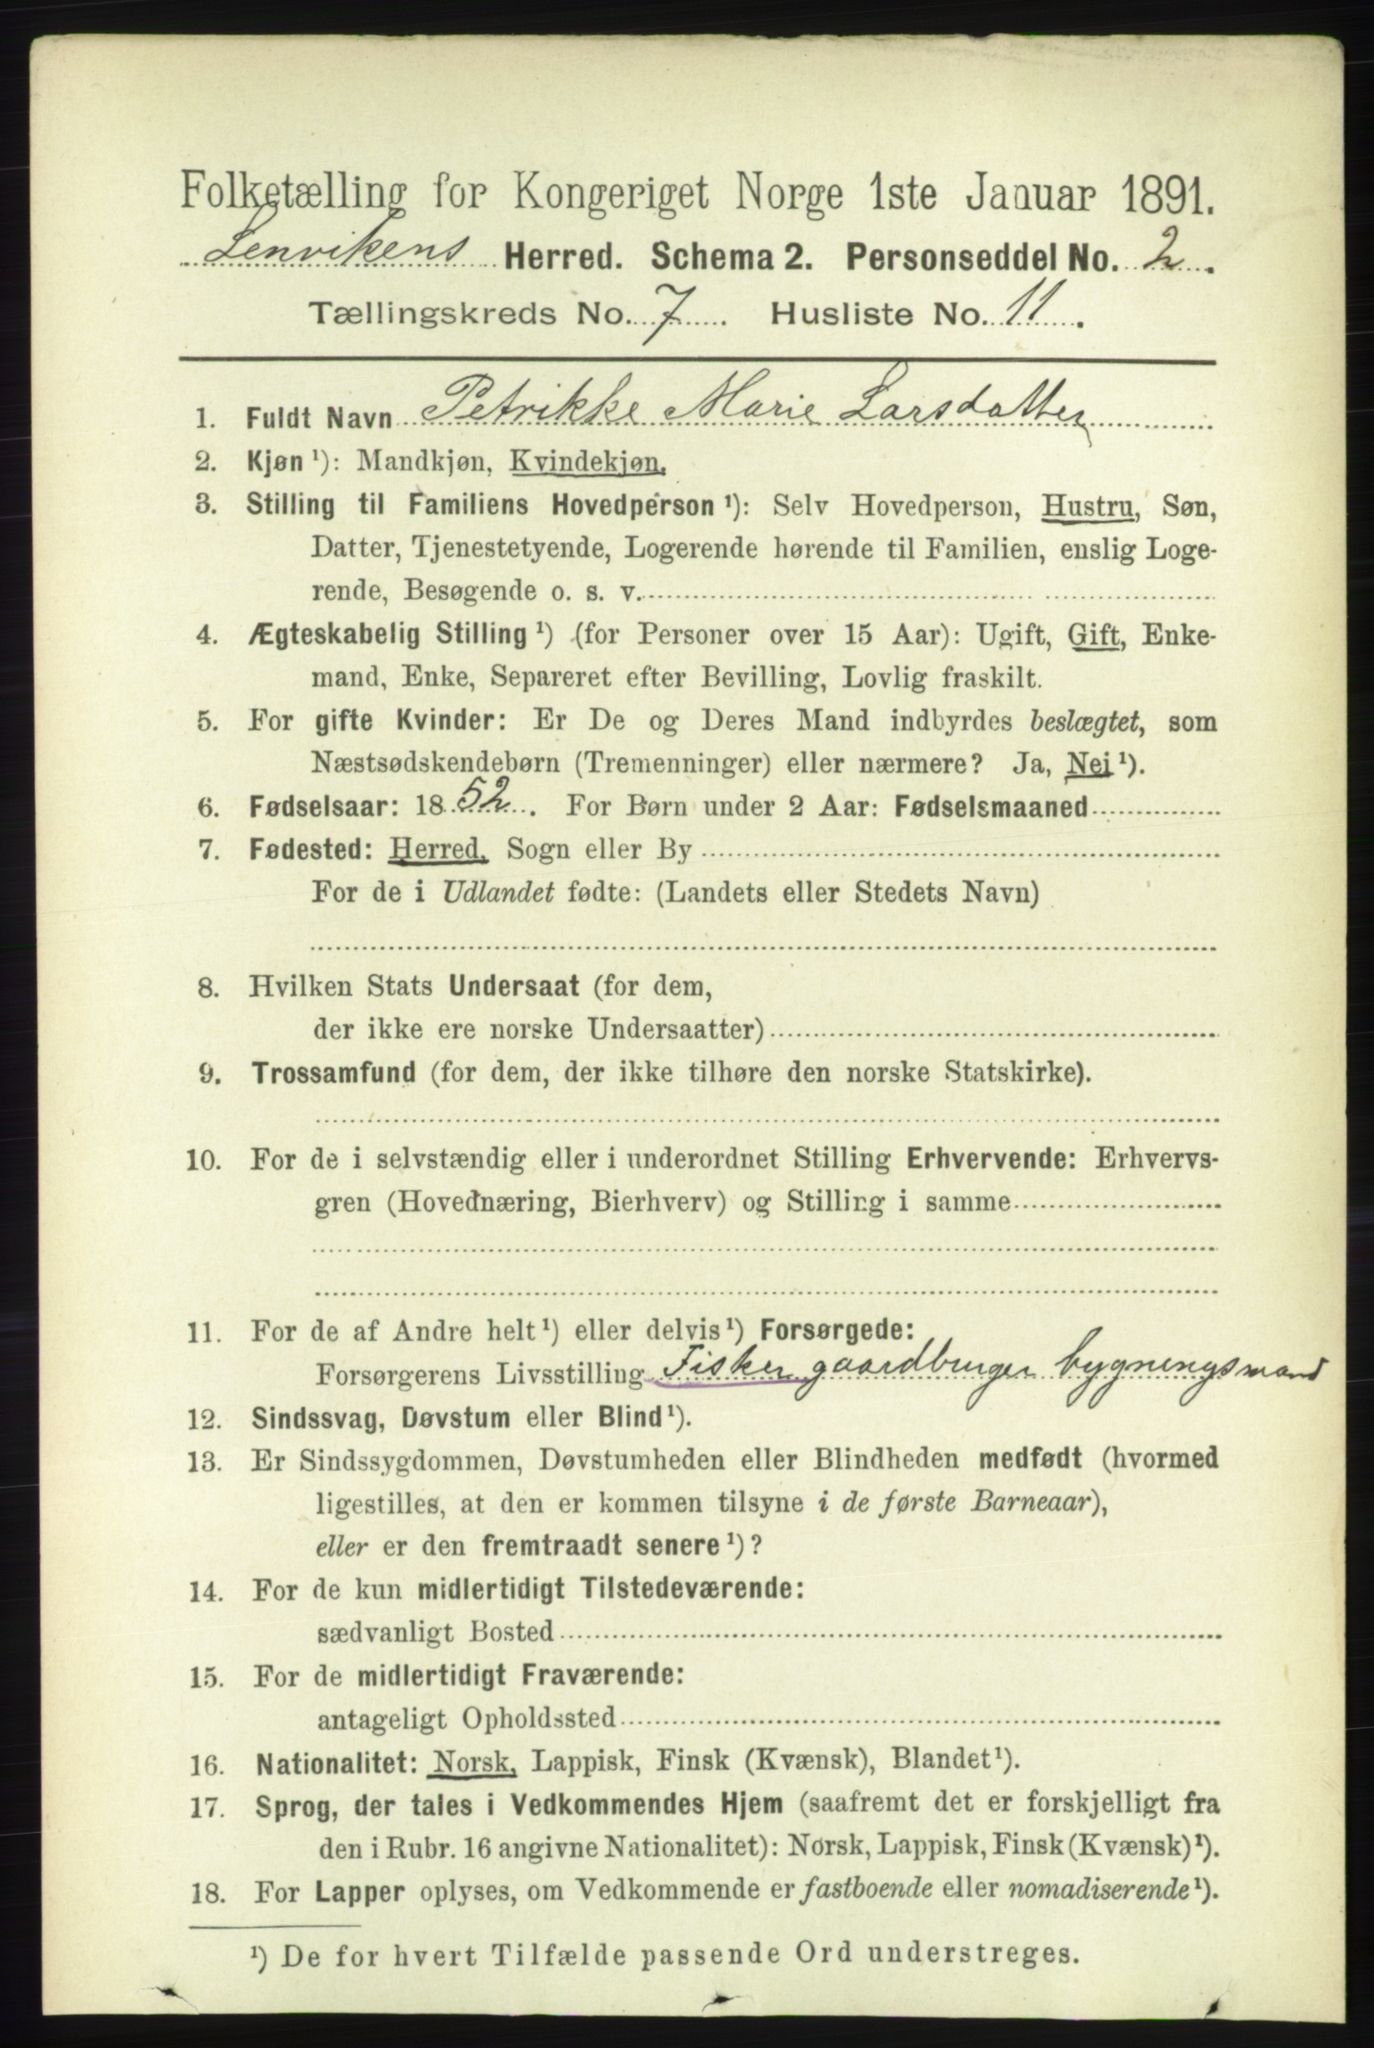 Folketælling for Kongeriget Norge 1ste Januar 1891.
Lenvikens Herred. Schema 2. Personseddel No. 2.
Tællingskreds No. 7. Husliste No. 11.
1. Fuldt Navn Petrikke Marie Larsdatter
2. Kjøn ¹): Mandkjøn, Kvindekjøn.
3. Stilling til Familiens Hovedperson ¹): Selv Hovedperson, Hustru, Søn,
Datter, Tjenestetyende, Logerende hørende til Familien, enslig Loge-
rende, Besøgende o. s. v.
4. Ægteskabelig Stilling ¹) (for Personer over 15 Aar): Ugift, Gift, Enke-
mand, Enke, Separeret efter Bevilling, Lovlig fraskilt.
5. For gifte Kvinder: Er De og Deres Mand indbyrdes beslægtet, som
Næstsødskendebørn (Tremenninger) eller nærmere? Ja, Nei ¹).
6. Fødselsaar: 1852. For Børn under 2 Aar: Fødselsmaaned
7. Fødested: Herred, Sogn eller By
For de i Udlandet fødte: (Landets eller Stedets Navn)
8. Hvilken Stats Undersaat (for dem,
der ikke ere norske Undersaatter)
9. Trossamfund (for dem, der ikke tilhøre den norske Statskirke).
10. For de i selvstændig eller i underordnet Stilling Erhvervende: Erhvervs-
gren (Hovednæring, Bierhverv) og Stilling i samme
11. For de af Andre helt ¹) eller delvis ¹) Forsørgede:
Forsørgerens Livsstilling Fisker gaardbruger bygningsmand
12. Sindssvag, Døvstum eller Blind ¹).
13. Er Sindssygdommen, Døvstumheden eller Blindheden medfødt (hvormed
ligestilles, at den er kommen tilsyne i de første Barneaar),
eller er den fremtraadt senere ¹)?
14. For de kun midlertidigt Tilstedeværende:
sædvanligt Bosted
15. For de midlertidigt Fraværende:
antageligt Opholdssted
16. Nationalitet: Norsk, Lappisk, Finsk (Kvænsk), Blandet ¹).
17. Sprog, der tales i Vedkommendes Hjem (saafremt det er forskjelligt fra
den i Rubr. 16 angivne Nationalitet): Norsk, Lappisk, Finsk (Kvænsk) ¹).
18. For Lapper oplyses, om Vedkommende er fastboende eller nomadiserende ¹).
¹) De for hvert Tilfælde passende Ord understreges.